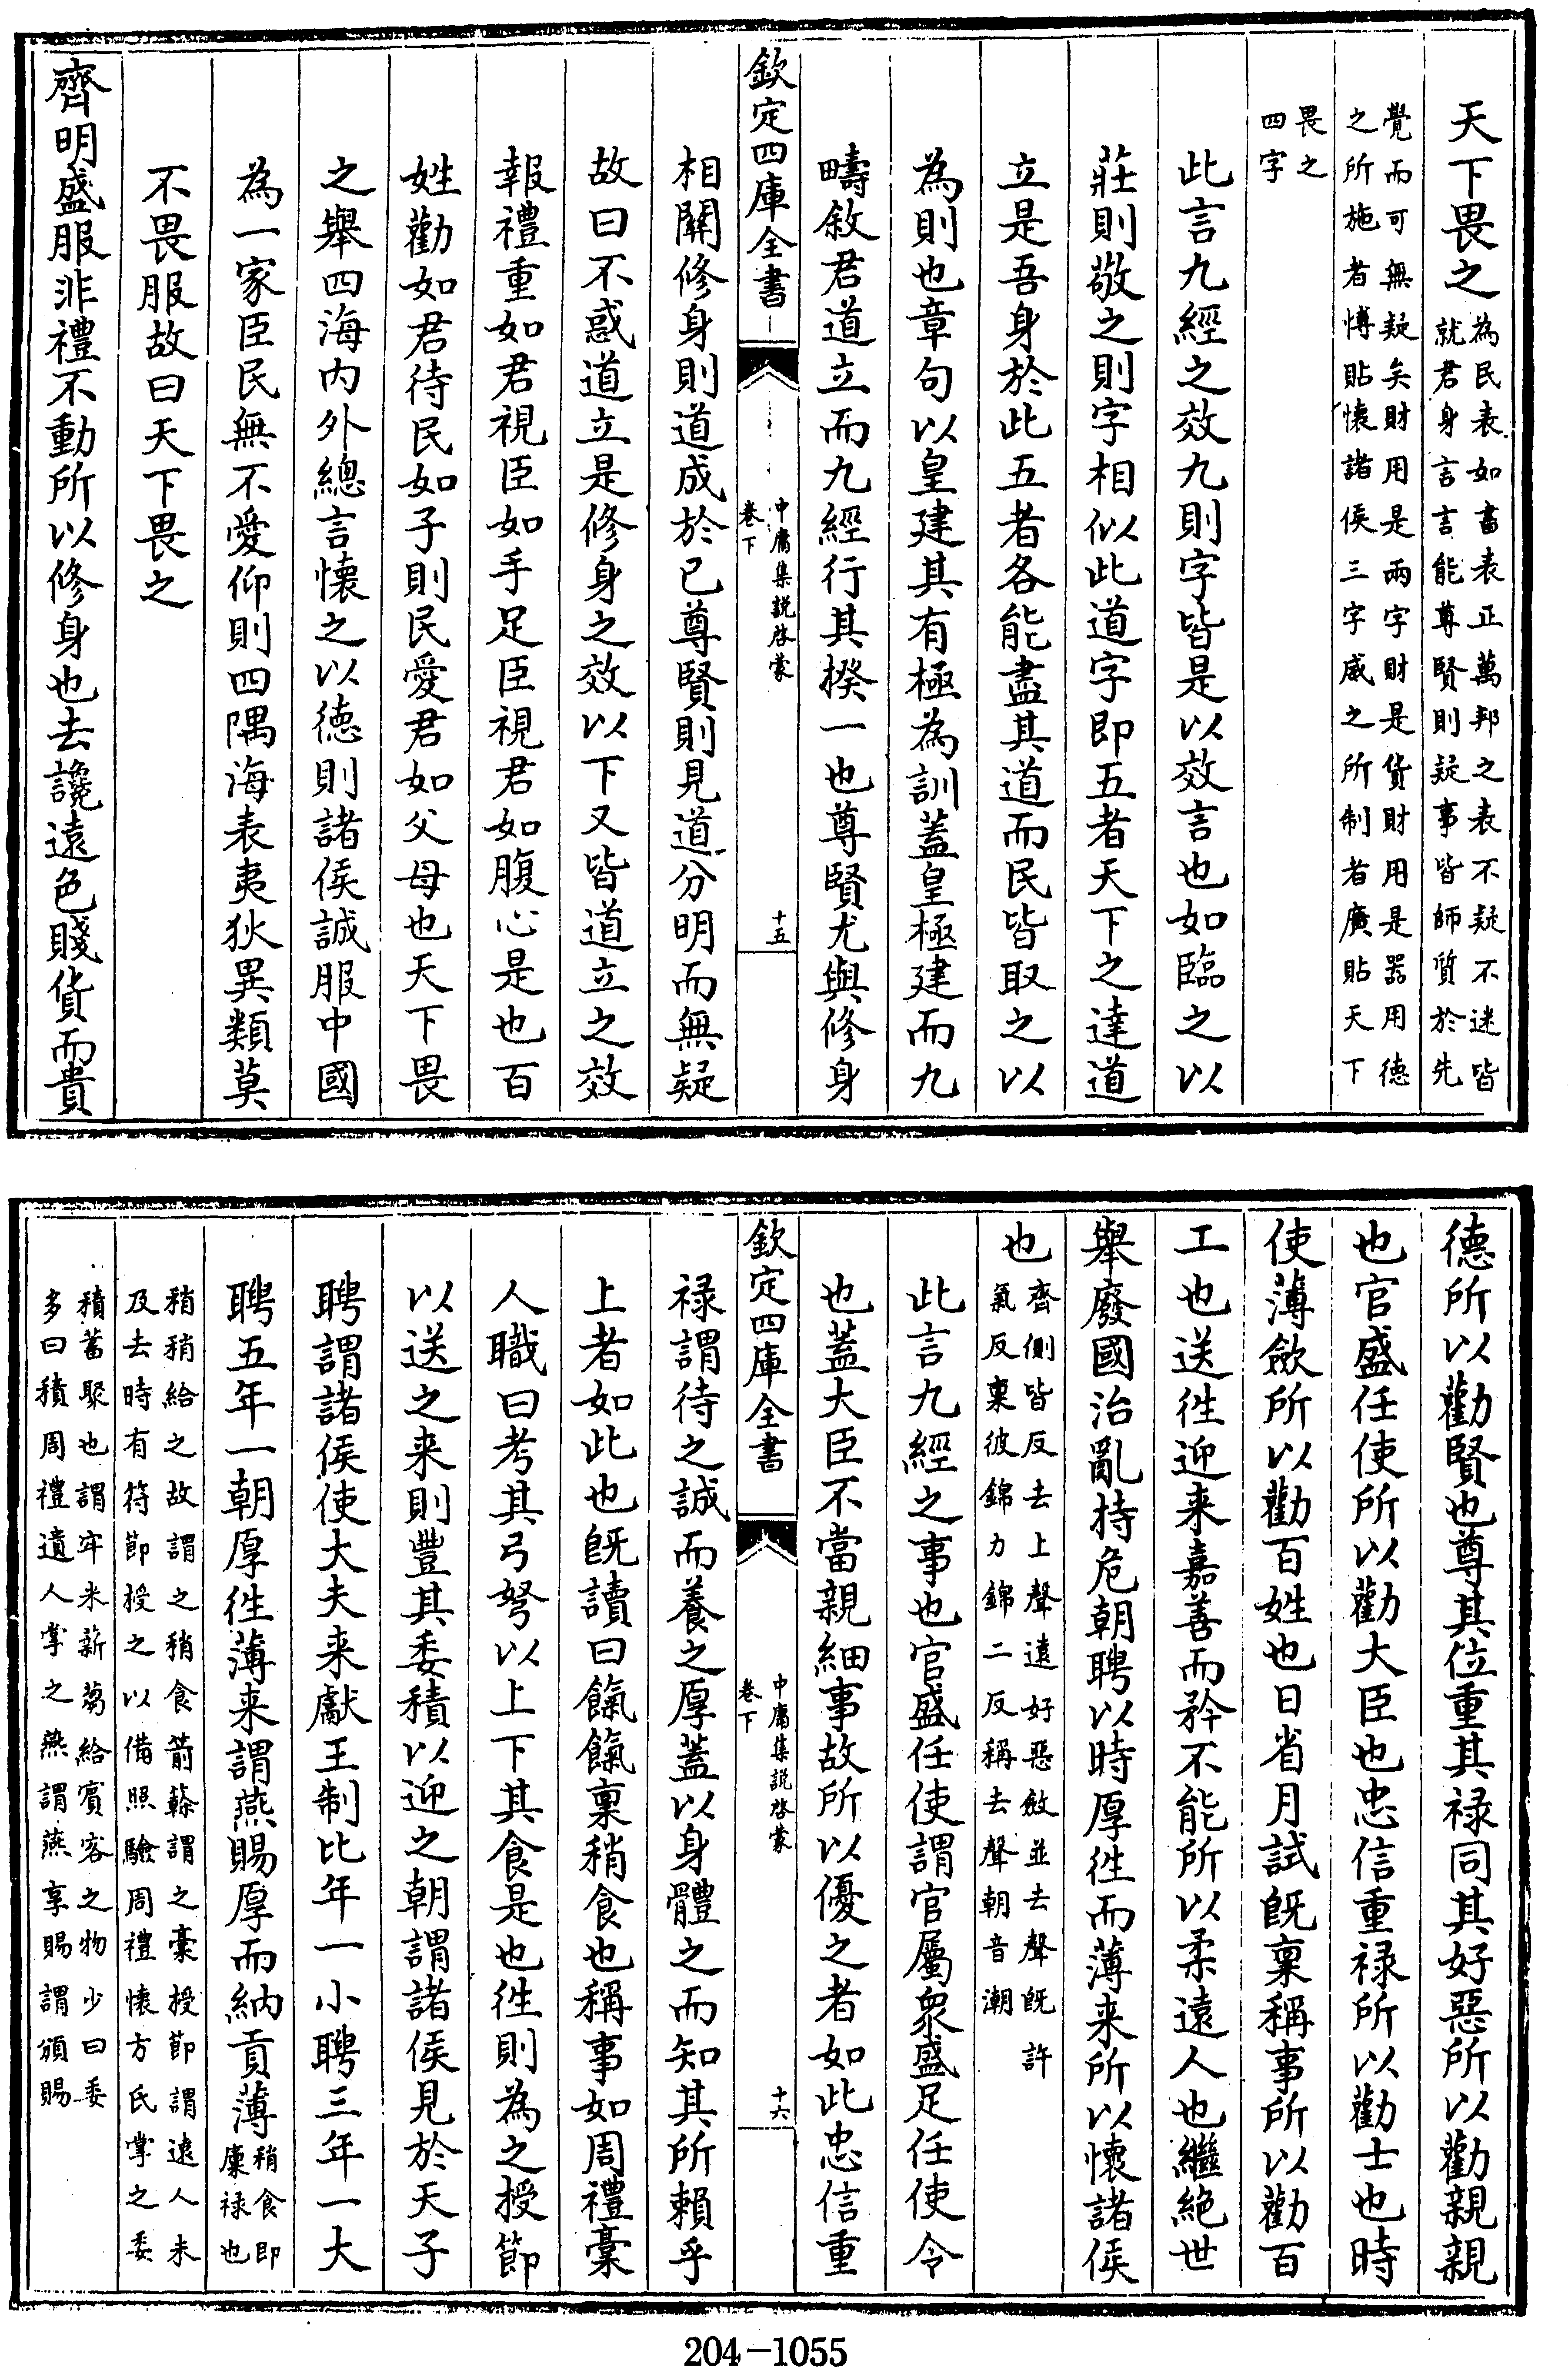 天下畏之為民表如晝表正萬邦之表不疑不迷皆
就君身言言能尊賢則疑事皆師質於先
覺而可無疑矣財用是兩字財是貨財用是器用德
之所施者博貼懷諸侯三字威之所制者廣貼天下
畏之
四字
此言九經之效九則字皆是以效言也如臨之以
莊則敬之則字相似此道字即五者天下之達道
立是吾身於此五者各能盡其道而民皆取之以
為則也章句以皇建其有極為訓蓋皇極建而九
疇敘君道立而九經行其揆一也尊賢尤與修身
欽定四庫全書
中庸集說啓蒙
卷下
十五
相關修身則道成於已尊賢則見道分明而無疑
故曰不惑道立是修身之效以下又皆道立之效
報禮重如君視臣如手足臣視君如腹心是也百
姓勸如君待民如子則民愛君如父母也天下畏
之舉四海内外總言懷之以德則諸侯誠服中國
為一家臣民無不愛仰則四隅海表夷狄異類莫
不畏服故曰天下畏之
齊明盛服非禮不動所以修身也去讒遠色賤貨而貴
德所以勸賢也尊其位重其祿同其好惡所以勸親親
也官盛任使所以勸大臣也忠信重祿所以勸士也時
使薄斂所以勸百姓也日省月試旣稟稱事所以勸百
工也送徃迎来嘉善而矜不能所以柔遠人也繼絶世
舉廢國治亂持危朝聘以時厚徃而薄来所以懷諸侯
也齊側皆反去上聲遠好惡斂並去聲旣許
氣反稟彼錦力錦二反稱去聲朝音潮
此言九經之事也官盛任使謂官屬衆盛足任使令
也蓋大臣不當親細事故所以優之者如此忠信重
欽定四庫全書
中庸集說啓蒙
卷下
十六
祿謂待之誠而養之厚蓋以身體之而知其所賴乎
上者如此也旣讀曰餼餼稟稍食也稱事如周禮稾
人職曰考其弓弩以上下其食是也徃則為之授節
以送之来則豐其委積以迎之朝謂諸侯見於天子
聘謂諸侯使大夫来獻王制比年一小聘三年一大
聘五年一朝厚徃薄来謂燕賜厚而納貢薄稍食即
廩祿也
稍稍給之故謂之稍食箭簳謂之稾授節謂遠人未
及去時有符節授之以備照驗周禮懷方氏掌之委
積蓄聚也謂牢米薪芻給賓客之物少曰委
多曰積周禮遺人掌之燕謂燕享賜謂頒賜
204-1055